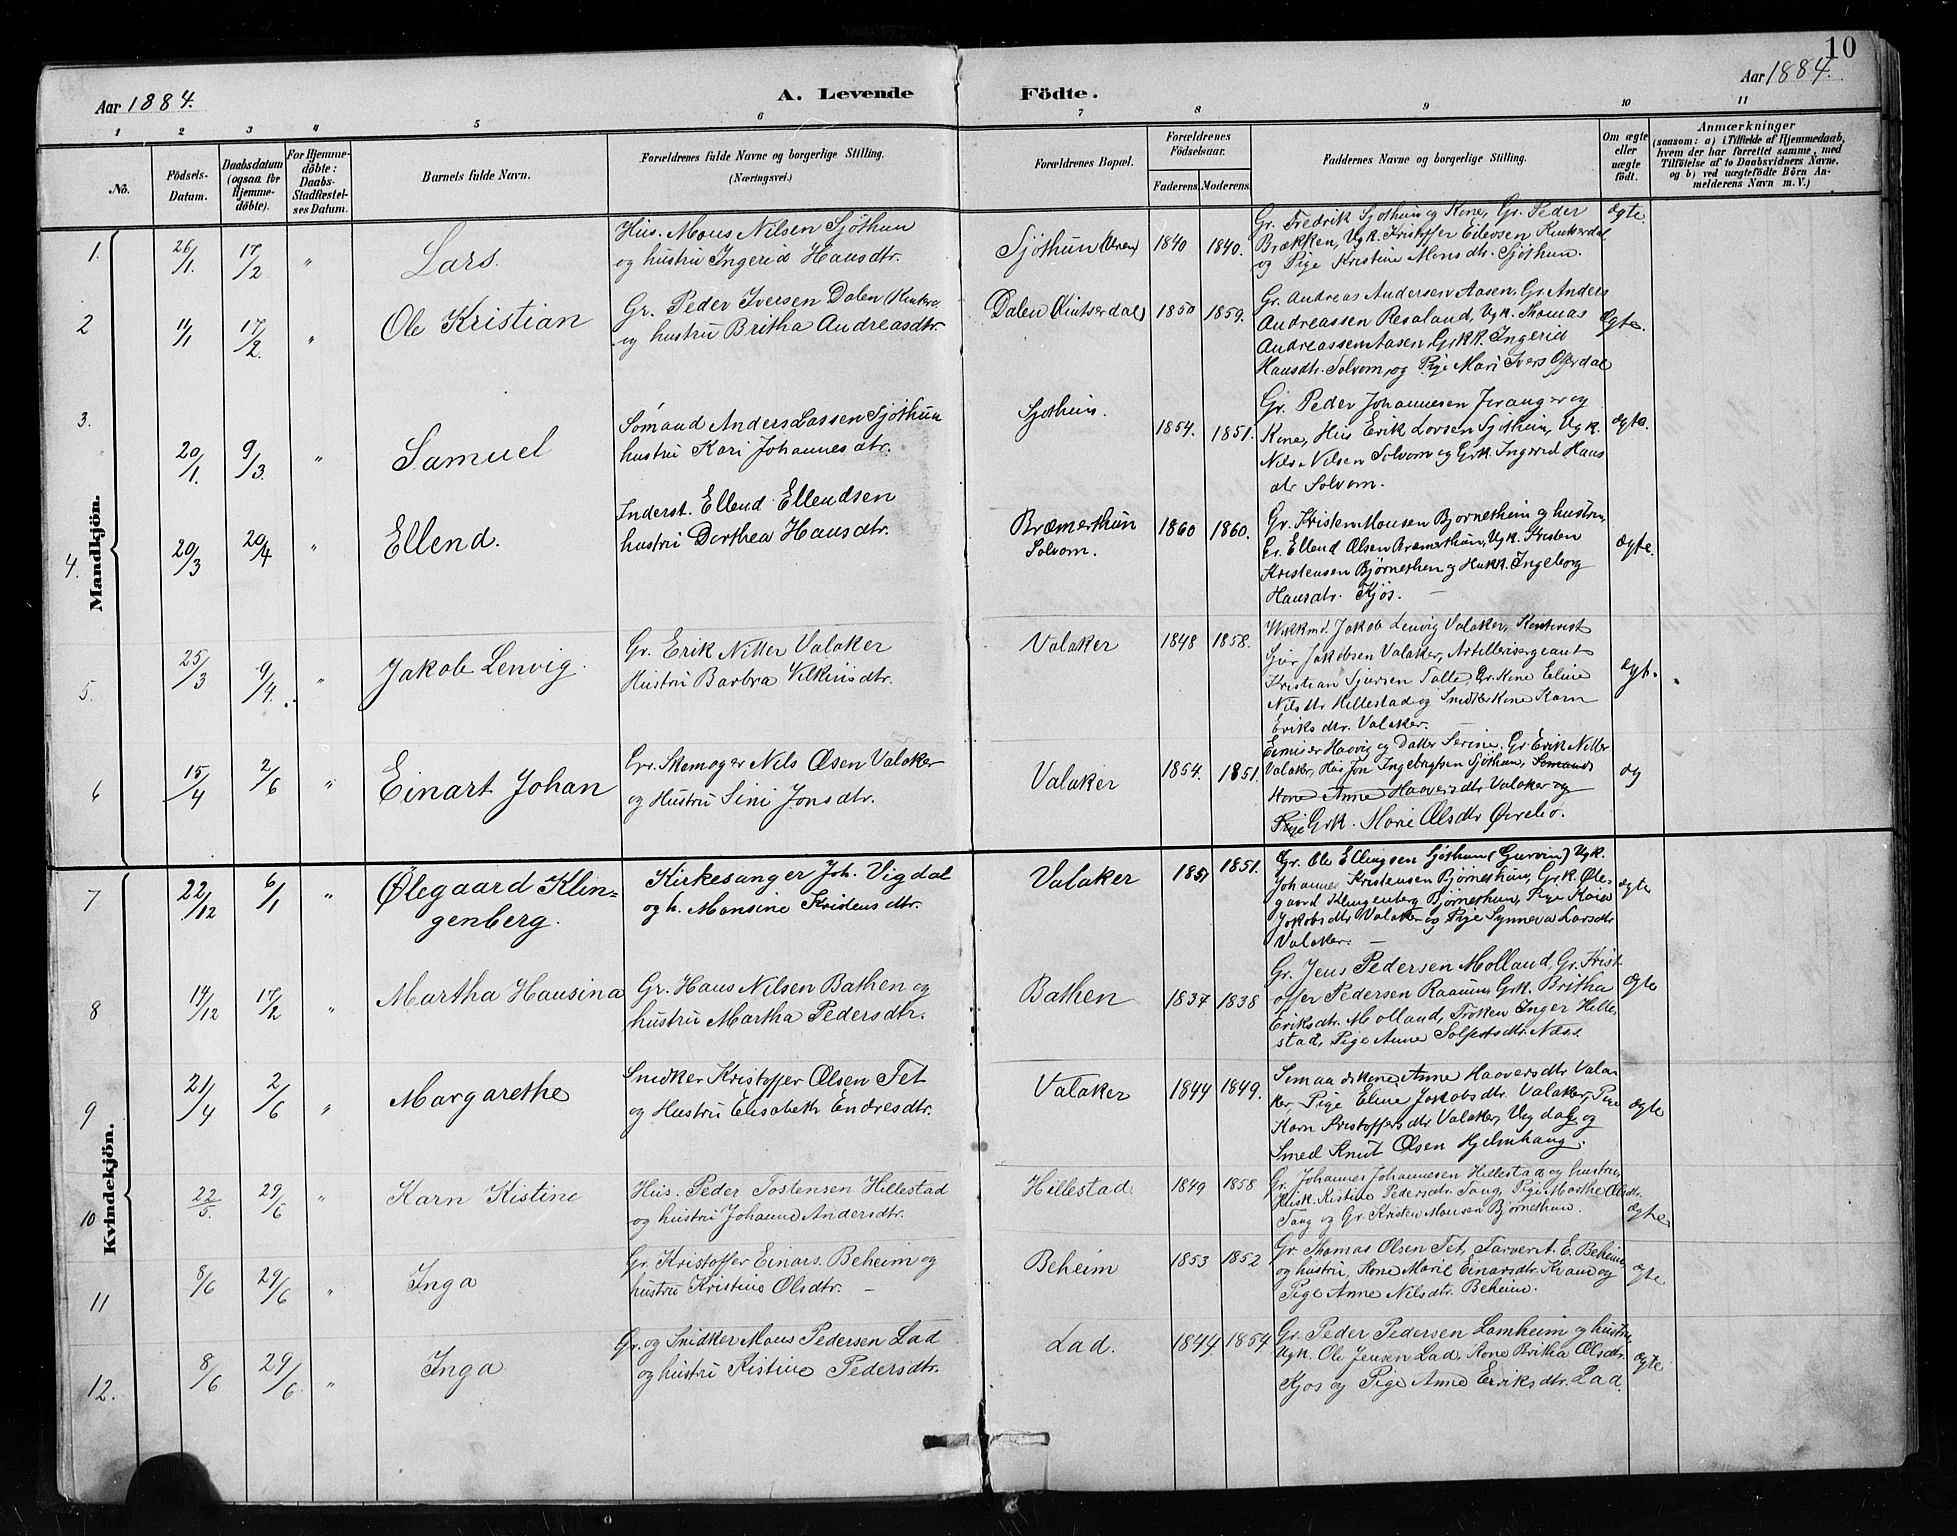 10
Aar 1884.
A. Levende Födte.
Aar 1884.
1 2 3 4 5 6 7 8 9 10 11
No.
Födsels-Datum.
Daabsdatum (ogsaa for Hjemme-döbte).
For Hjemme-döbte: Daabs-Stadfæstel-ses Datum.
Barnets fulde Navn.
Forældrenes fulde Navne og borgerlige Stilling.
(Næringsvei.)
Forældrenes Bopæl.
Forældrenes Födselsaar.
Faderens. Moderens.
Faddernes Navne og borgerlige Stilling.
Om ægte eller uægte födt.
Anmærkninger
(saasom: a) i Tilfælde af Hjemmedaab,
hvem der har forrettet samme, med
Tilföielse af to Daabsvidners Navne,
og b) ved uægtefödte Börn An-
melderens Navn m. V.)
Mandkjön.
1. 26/1 17/2 " Lars.
Hus. Mons Nilsen Sjøthun
og hustru Ingerid Hansdtr.
Sjøthun 1840 1840.
Gr. Fredrik Sjøthun og Kone, Gr. Peder
Brækken, Ugk. Kristoffer Eilevsen Kinserdal
og Pige Kristine Monsdtr. Sjøthun.
ægte.
2 11/1 17/2. " Ole Kristian
Gr. Peder Iversen Dalen
og hustru Britha Andreasdtr
Dalen (Kinserdal) 1850 1859.
Gr. Andreas Andersen Aasen, Gr. Anders
Andreassen Rosaland, Ugk. Thomas
Andreassen Aasen, Grkk. Ingerid
Hansdtr. Solvorn, og Pige Mari Ivers Ofterdal
Ægte.
3. 20/1. 9/3. " Samuel
Sömand Anders Lassen Sjøthun
hustru Kari Johannesdtr.
Sjøthun. 1854. 1851.
Gr. Peder Johannesen Fivanger og
Kone, Hus Erik Larsen Sjøthun, Ugk.
Nils Nilsen Solvorn og Grk. Ingerid Hans
dtr Solvorn.
ægte.
4. 20/3 20/4 " Ellend.
Inderst. Ellend Ellendsen
hustru Dorthea Hansdtr.
Bræmerthun
Solvorn. 1860 1860.
Gr. Kristen Monsen Bjørnethun og hustru,
Gr. Ellend Olsen Bræmerthun, Ugk. Kristen
Kristensen Bjørnethun og Huskk. Ingeborg
Hansdtr. Kjøs. —
ægte.
5. 25/3 9/4. " Jakob Lenvig.
Gr. Erik Nitter Valaker
Hustru Barbra Vilkinsdtr.
Valaker 1848 1858.
Jakob Lenvig Valaker,
Sjur Jakobsen Valaker, Artillerisergeant
Kristian Sjursen Talle, Gr. Kone Eline
Nilsdtr Hillestad og Snidkerkone Karn
Eriksdtr. Valaker.
ægt.
6 15/4 2/6 " Einart Johan
Gr. Skomager Nils Olsen Valaker
og Hustru Sini Jonsdtr.
Valaker 1854. 1851.
Haavig og Datter Serine. Gr Erik Nitter
Valaker, Hus Jon Ingebrigtsen Sjøthun, Sömands
Kone Anne Haaversdtr Valaker og
Pige Grk. Marie Olsdtr Øvrebø.
og
Kvindekjön.
7 22/12 6/1 " Ølegaard Klin-
genberg.
Kirkesanger Joh. Vigdal
og h. Monsine Kridensdtr.
Valaker 1851 1851.
Gr. Ole Ellingsen Sjøthun (Gurvin) Ugk.
Johannes Kristensen Bjørnethun, Grk. Øle-
gaard Klingenberg Bjørnethun, Pige Kaia
Jakobsdtr Valaker og Pige Synneva Larsdtr
Valaker. —
ægte
8 14/12 17/2 " Martha Hansina
Gr. Hans Nilsen Bathen og
hustru Martha Pedersdtr.
Bathen 1837 1838
Gr. Jens Pedersen Molland, Gr. Krist-
offer Pedersen Raaum, Grk. Britha
Eriksdtr. Molland, Frøken Inger Hille-
stad, Pige Anne Solfestsdtr. Næss.
ægte
9 21/4 2/6 " Margarethe
Snidker Kristoffer Olsen Tet
og Hustru Elisabeth Endresdtr.
Valaker 1844 1849.
Sömaadskone Anne Haaversdtr Vala-
ker, Pige Eline Jakobsdtr. Valaker, Pige
Karn Kristoffersdtr Valaker, og
Smed Knut Olsen Hjelmhaug.
ægte
10 22/5. 29/6 " Karn Kistine
Hus. Peder Tostensen Hillestad
og hustru Johanne Andersdtr.
Hillestad. 1849 1858
Gr. Johannes Johannesen Hillestad og hustru,
Husk. Kistine Pedersdtr. Taug, Pige Marthe Olsdtr.
Taug og Gr. Kristen Monsen Bjørnethun.
ægte
11 8/6 29/6 " Inga
Gr. Kristoffer Einars. Beheim og
hustru Kristine Olsdtr. —
Beheim 1853 1852
Gr. Thomas Olsen Tet, Farver A. E. Beheim
og hustru, Kone Marie Einarsdtr. og
Pige Anne Nilsdtr. Beheim.
ægte
12. 8/6 29/6 " Inga
Gr. og Snidker Mons Pedersen Lad
og hustru Kistine Pedersdtr.
Lad. 1844 1854.
Gr. Peder Pedersen Lomheim og hustru,
Ugk. Ole Jensen Lad, Kone Britha Olsdtr.
Kjøs og Pige Anne Eriksdtr. Lad.
ægte